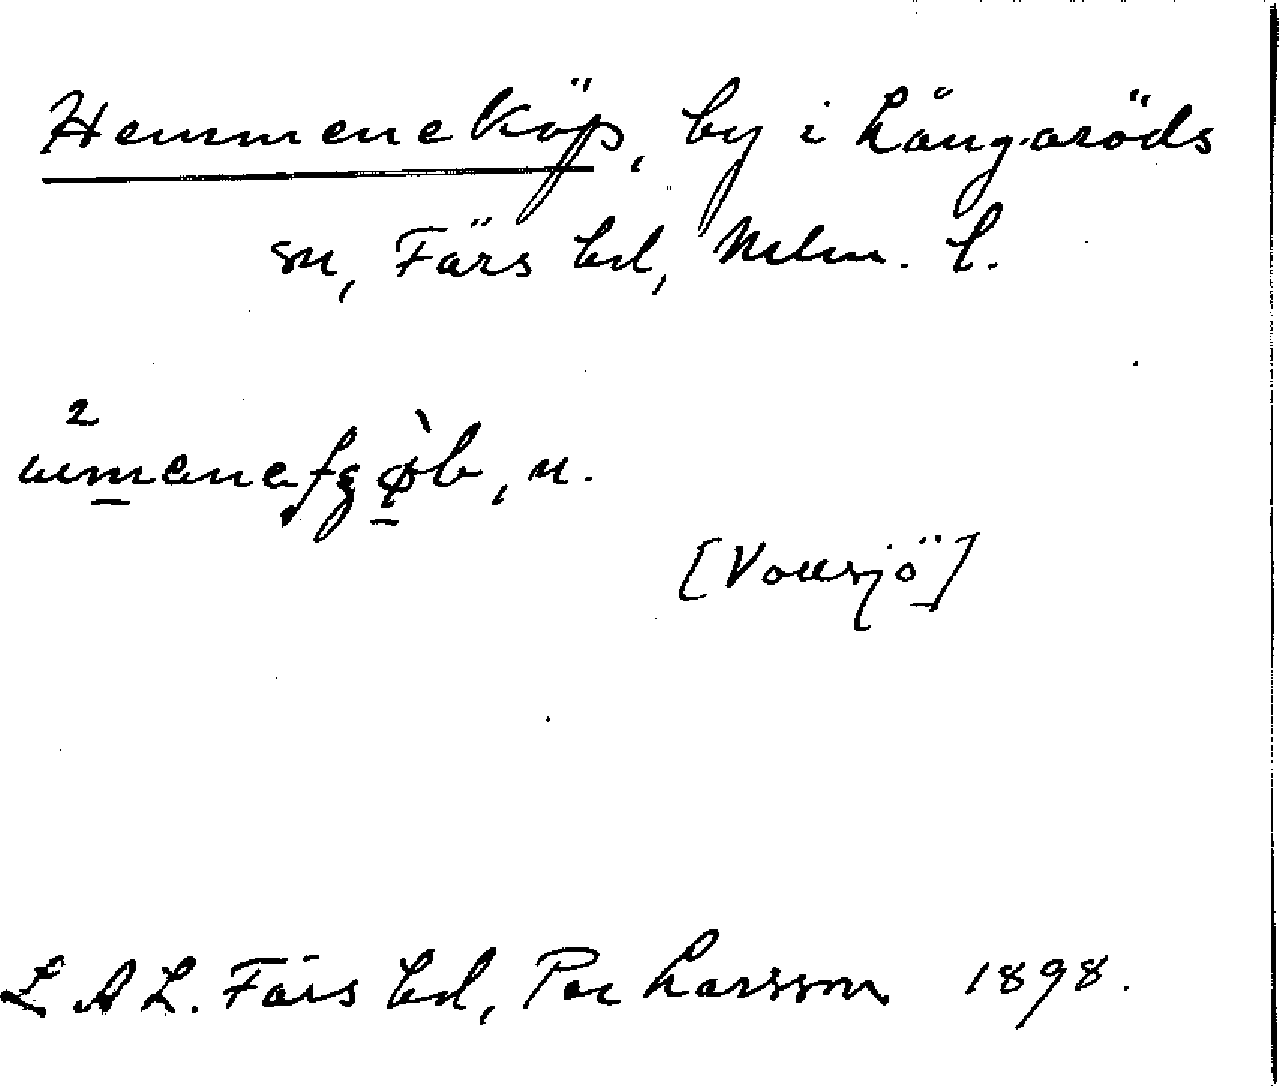 Hemmeneköp, by i Långaröds
sn, Färs hd, Mlm. l.
[Vollsjö]
L A L. Färs hd, Per Larsson 1898.